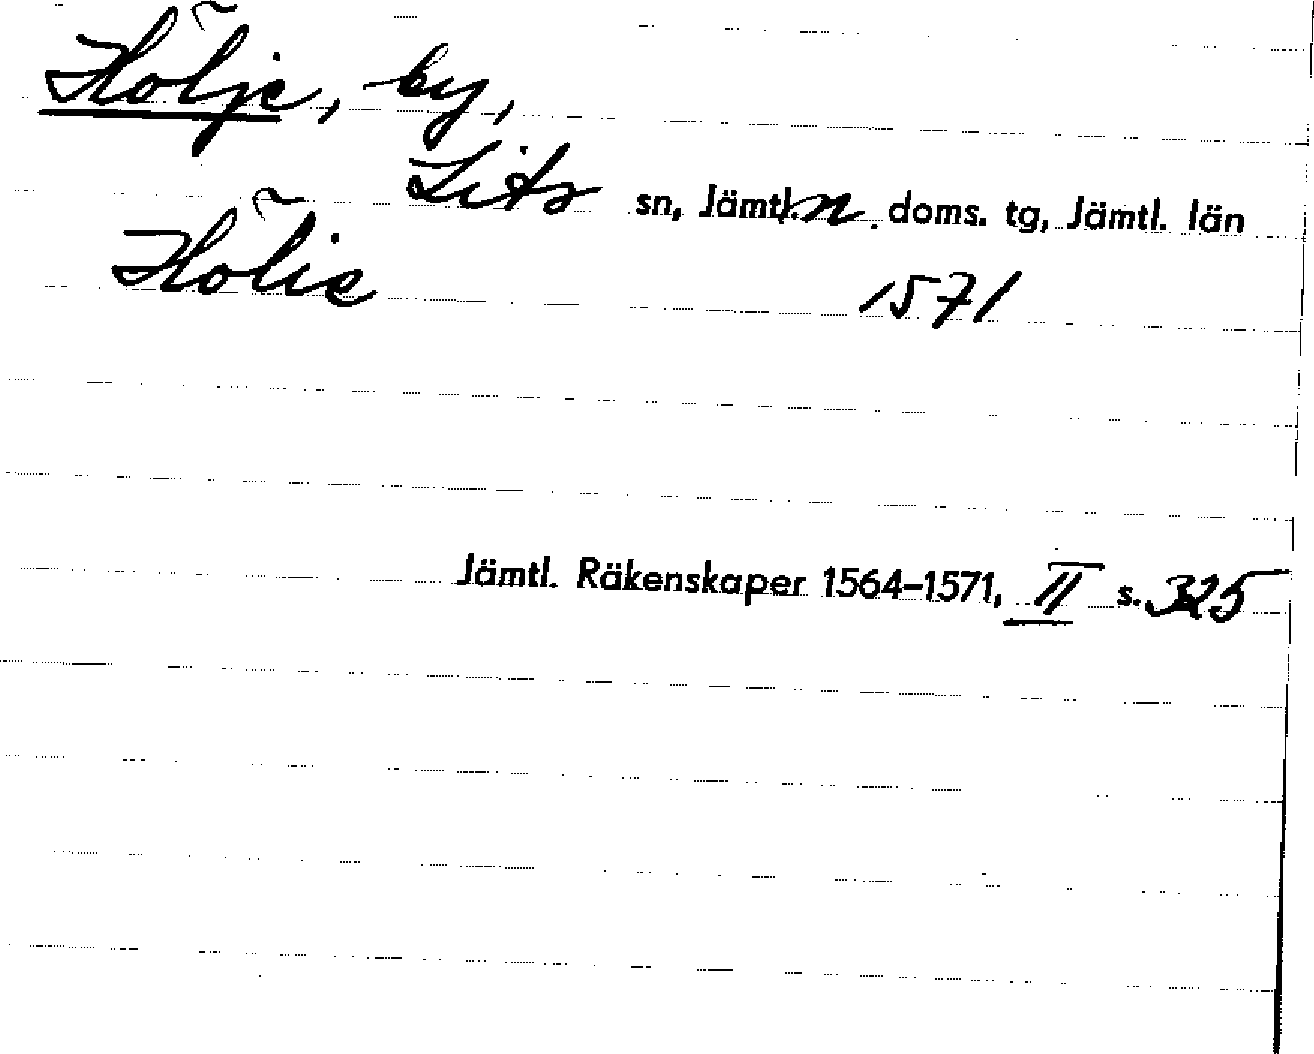 Hölje, by,
Lits sn, Jämtl. n. doms. tg, Jämtl. län
Hölie 1571
Jämtl. Räkenskaper 1564–1571, II s. 325